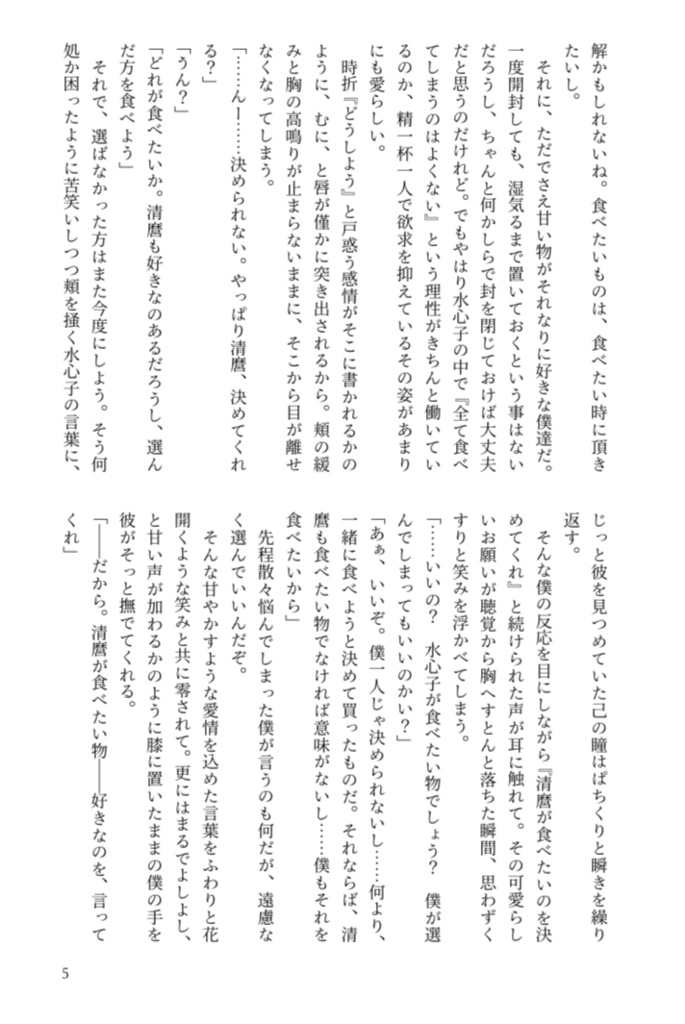 解かもしれないね。食べたいものは、食べたい時に頂き
たいし。
　それに、ただでさえ甘い物がそれなりに好きな僕達だ。
一度開封しても、湿気るまで置いておくという事はない
だろうし、ちゃんと何かしらで封を閉じておけば大丈夫
だと思うのだけれど。でもやはり水心子の中で『全て食べ
てしまうのはよくない』という理性がきちんと働いてい
るのか、精一杯一人で欲求を抑えているその姿があまり
にも愛らしい。
　時折『どうしよう』と戸惑う感情がそこに書かれるかの
ように、むに、と唇が僅かに突き出されるから。頬の緩
みと胸の高鳴りが止まらないままに、そこから目が離せ
なくなってしまう。
「……んー……決められない。やっぱり清麿、決めてくれ
る？」
「うん？」
「どれが食べたいか。清麿も好きなのあるだろうし、選ん
だ方を食べよう」
　それで、選ばなかった方はまた今度にしよう。そう何
処か困ったように苦笑いしつつ頬を掻く水心子の言葉に、
じっと彼を見つめていた己の瞳はぱちくりと瞬きを繰り
返す。
　そんな僕の反応を目にしながら『清麿が食べたいのを決
めてくれ』と続けられた声が耳に触れて。その可愛らし
いお願いが聴覚から胸へすとんと落ちた瞬間、思わずく
すりと笑みを浮かべてしまう。
「……いいの？　水心子が食べたい物でしょう？　僕が選
んでしまってもいいのかい？」
「あぁ、いいぞ。僕一人じゃ決められないし……何より、
一緒に食べようと決めて買ったものだ。それならば、清
麿も食べたい物でなければ意味がないし……僕もそれを
食べたいから」
　先程散々悩んでしまった僕が言うのも何だが、遠慮な
く選んでいいんだぞ。
　そんな甘やかすような愛情を込めた言葉をふわりと花
開くような笑みと共に零されて。更にはまるでよしよし、
と甘い声が加わるかのように膝に置いたままの僕の手を
彼がそっと撫でてくれる。
「――だから。清麿が食べたい物――好きなのを、言って
くれ」
5